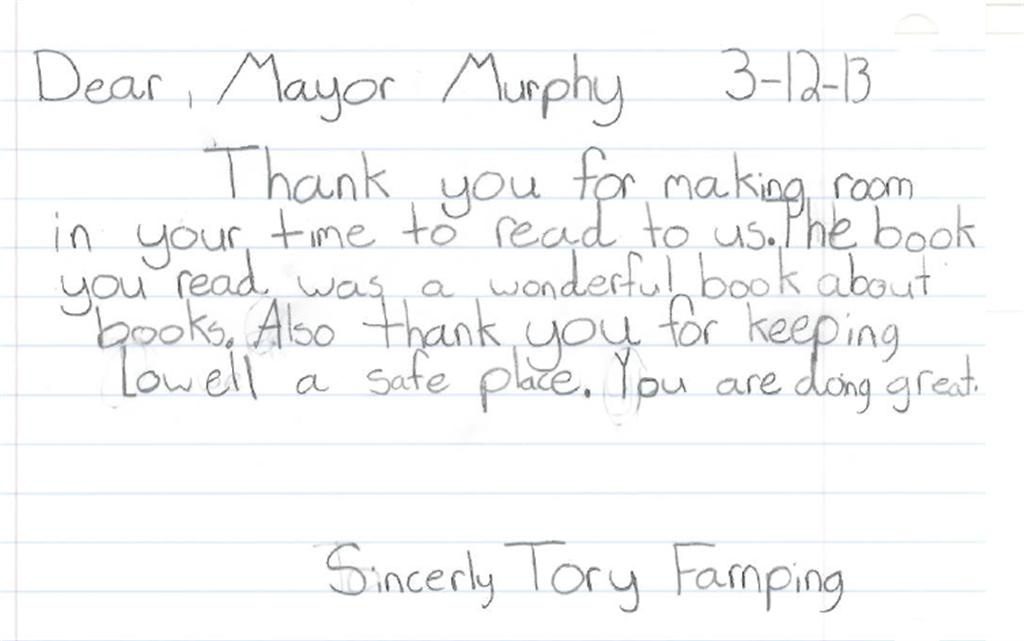 Dear, Mayor Murphy 3-12-13
Thank you for making room
in your time to read to us. The book
you read was a wonderful book about
books. Also thank you for keeping
Lowell a safe place. You are doing great.
Sincerly Tory Famping